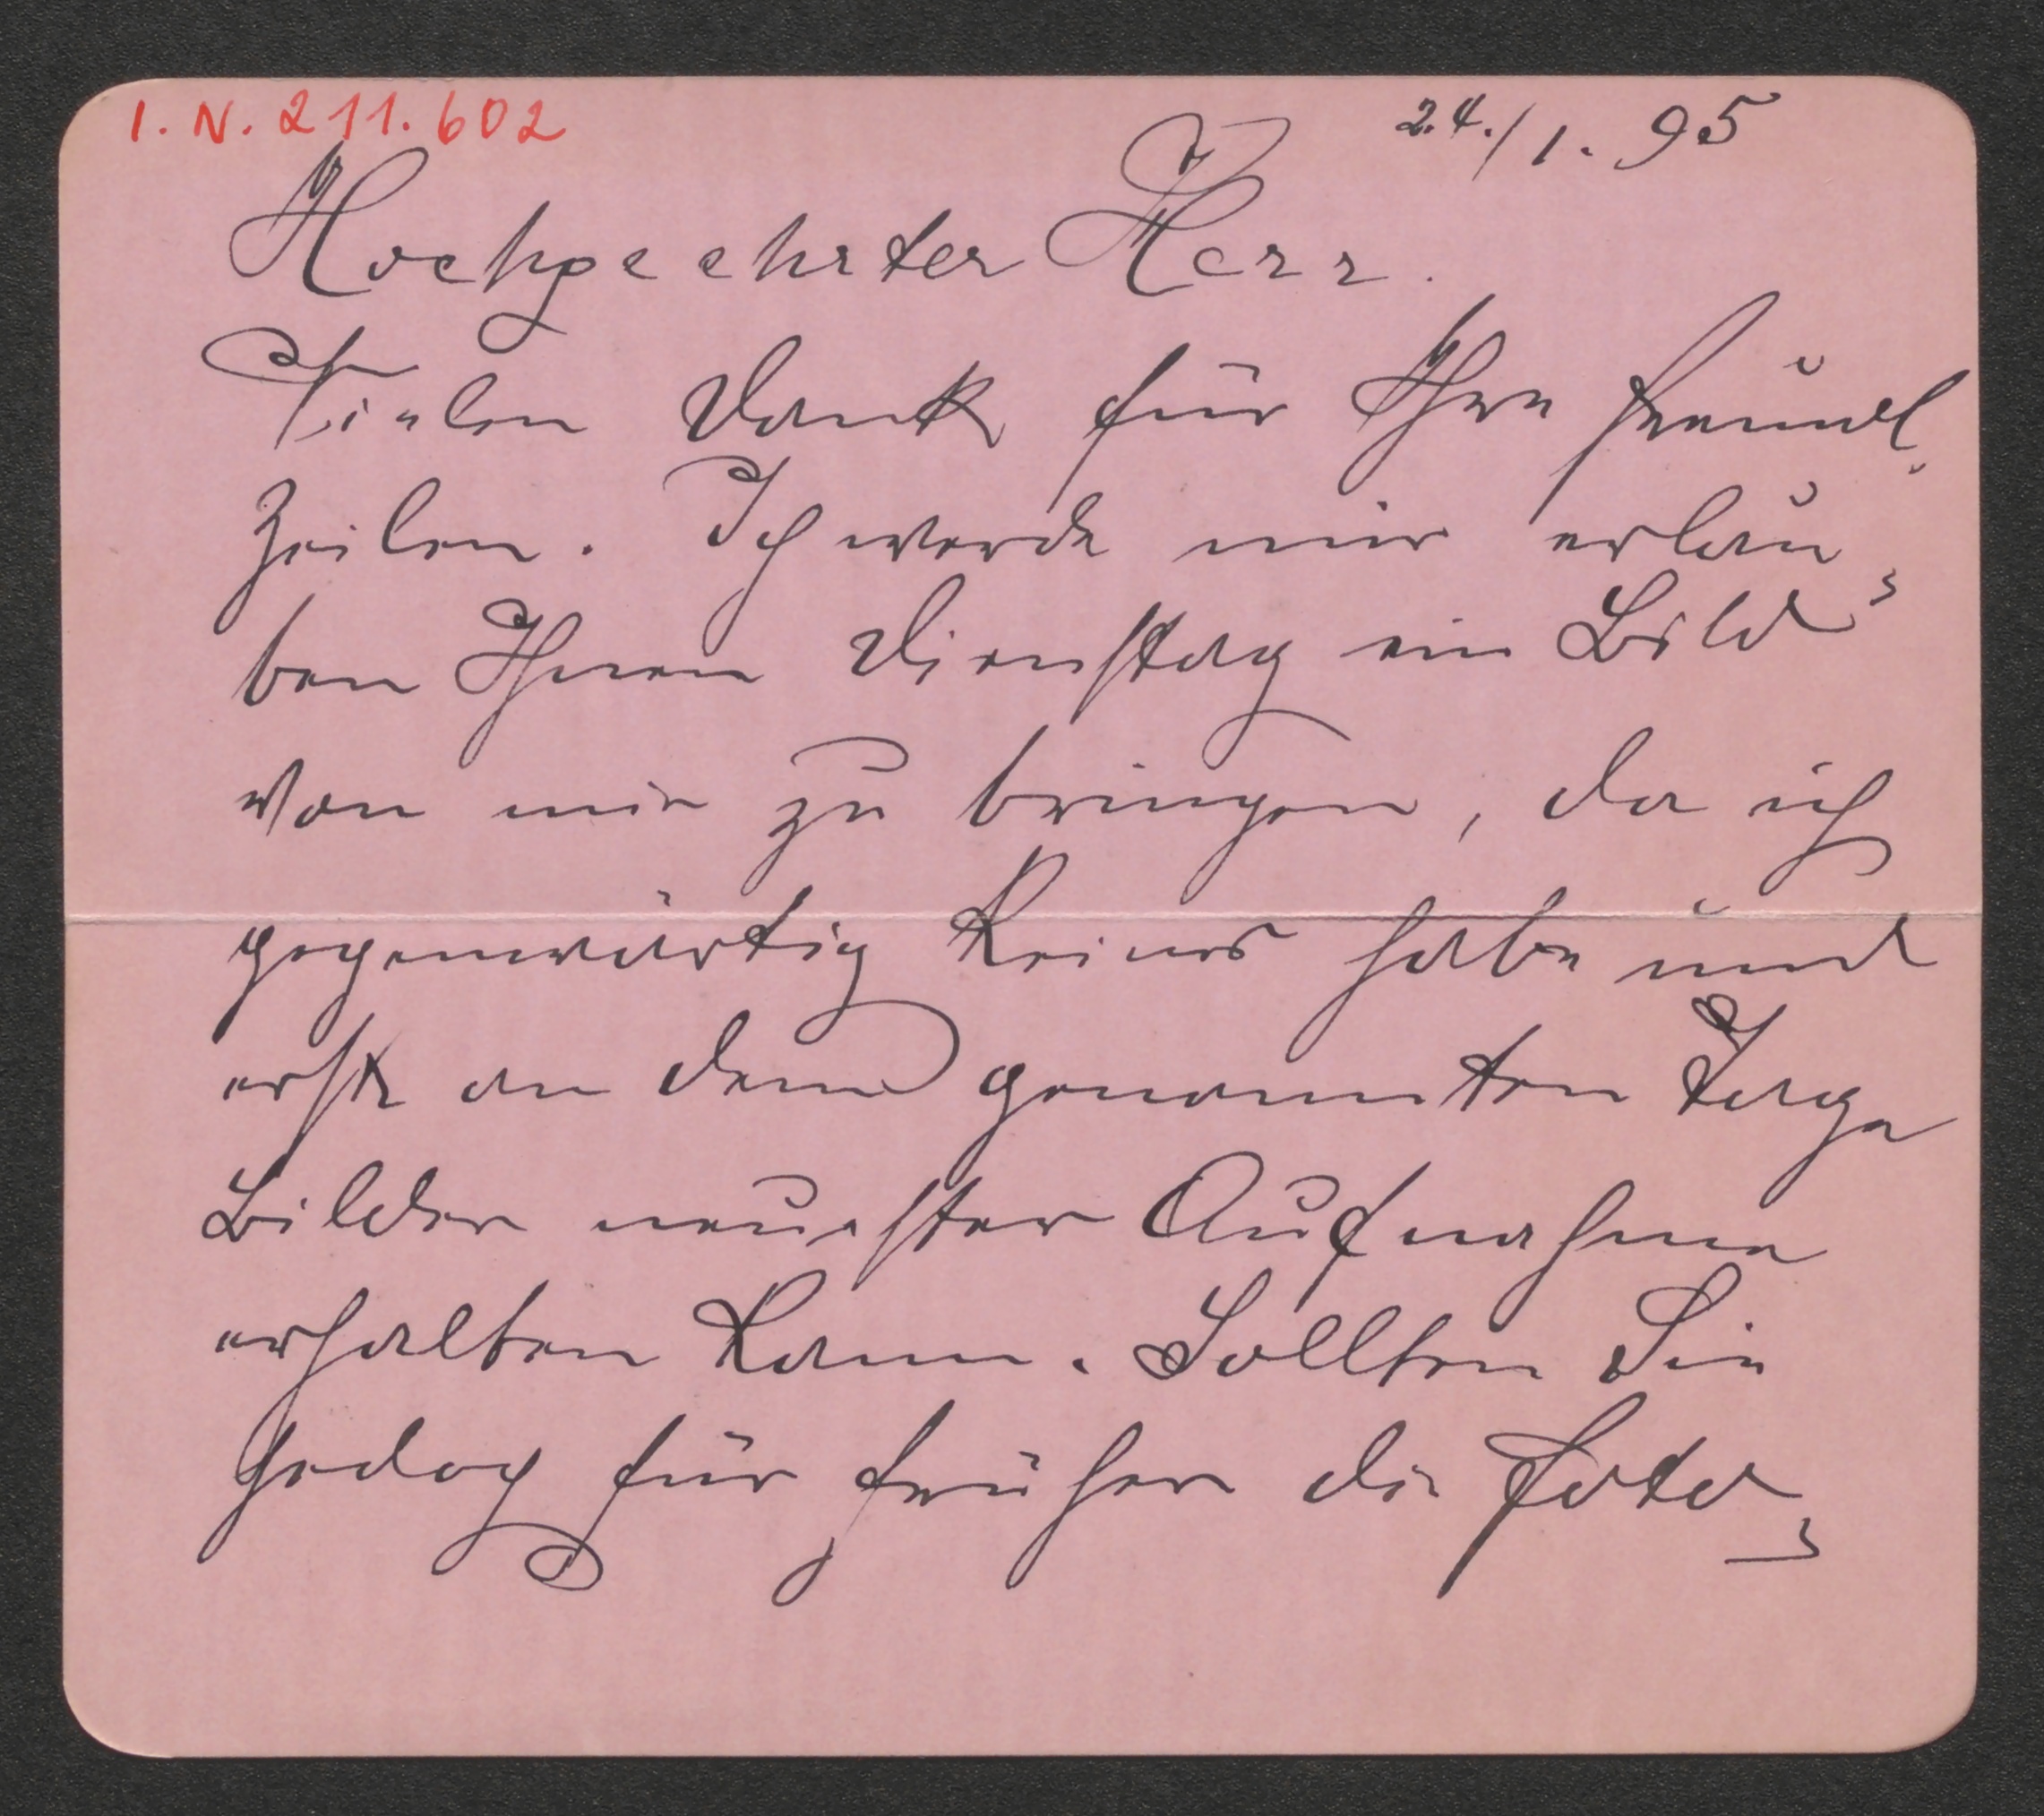 I. N. 211.602
24./1. 95
Hochgeehrter Herr.
Vielen Dank für Ihre freundl.
Zeilen. Ich werde mir erlau-
ben Ihnen Dienstag ein Bild
von mir zu bringen, da ich
gegenwärtig keines habe und
erst an dem genannten Tage
Bilder neuester Aufnahme
erhalten kann. Sollten Sie
jedoch für früher die Foto-